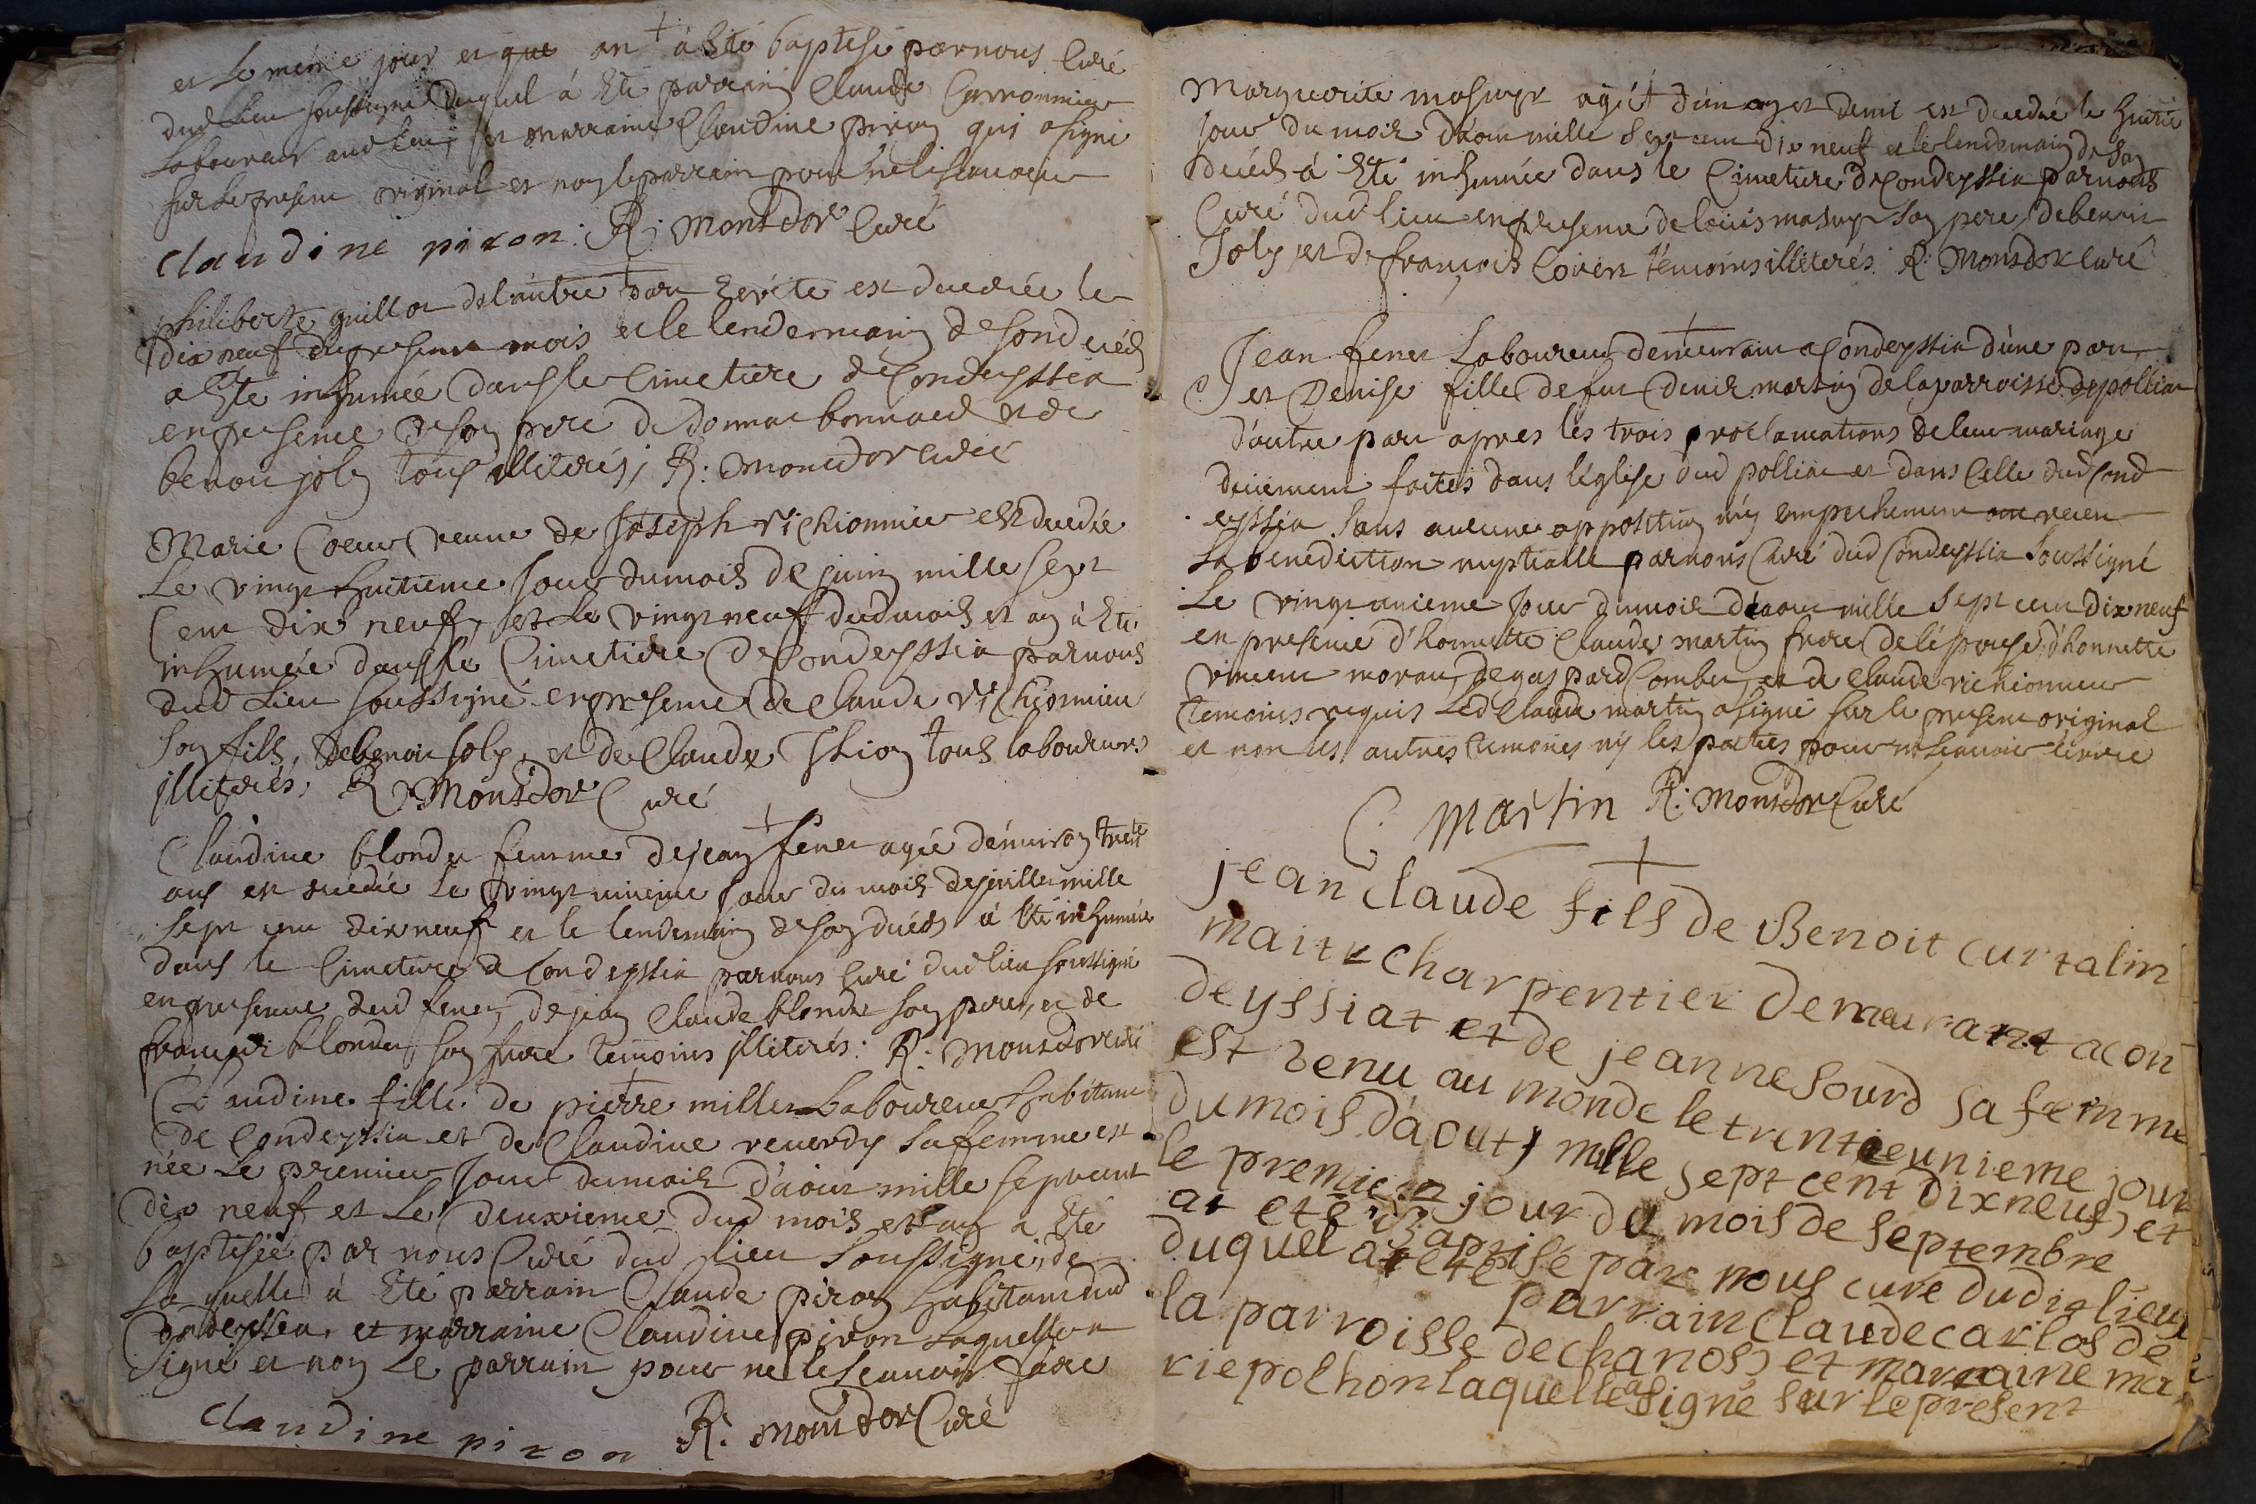 et le même jour et que an à Eté baptisé par nous Curé
dud lieu soussigné duquel à Eté parrain Claude Carronnier
Laboureur aud lieu, et marraine Claudine piron qui a signé
sur le present original et non le parrain pour ne le scauoir
claudine piron: R: Monsdor Curé
philiberte guillot de l'autre part écrite est decedée le
dix neuf du present mois et le lendemain de son decéd
a Eté inhumée dans le Cimetiere de Condeyssia
en presence de son pere de donnat bonnaud et de
benoit joly tous illiterés; R: monsdor curé
Marie Coeur veuue de Joseph richionnier est decedée
Le vingt huictieme Jour du mois de juin mille sept
Cent dix neuf, et le vingt neuf dud mois et an à Eté
inhumée dans le Cimetiere de Condeyssia par nous
dud lieu soussigné en presence de Claude richionnier
son fils, de benoit joly, et de Claude tous laboureurs
illiterés, R: Monsdor Curé
Claudine blondet femme de jean feret agée d'enuiron trente
ans est decedée le vingt unieme jour du mois de juillet mille
sept cent dix neuf et le lendemain de son decéds à Eté inhumée
dans le Cimetiere de Condeyssia par nous Curé dud lieu soussigné
en presence dud feret, de jean Claude blondet son pere, et de
francois blondet son frere temoins illiterés: R: Monsdor curé
Claudine fille de pierre millet Laboureur habitant
de Condeyssia et de Claudine reuerdy sa femme est
née Le premier Jour du mois d'aout mille sept cent
dix neuf et Le deuxieme dud mois et an à Eté
baptisée par nous Curé dud lieu soussigné, de
Laquelle à Eté parrain Claude piron habitant dud
Condeyssia, et marraine Claudine piron Laquelle a
signé et non Le parrain pour ne le scauoir faire
claudine piron R: monsdor Curé
Marguerite masuyr agée d'un an et demi est decedée le huitie
jour du mois d'aout mille sept cent dix neuf et le lendemain de son
decéds à Eté inhumée dans le Cimetiere de Condeyssia par nous
Curé dud lieu en presence de louis masuyr son pere, de benoit
Joly et de francois temoins illiterés. R: Monsdor Curé
Jean feret Laboureur demeurant a Condeyssia d'une part
et Denise fille de feu Denis martin de la parroisse de polliat
d'autre part apres les trois proclamations de leur mariage
deüement faites dans l'église dud polliat et dans Celle dud Cond
eyssia sans aucune opposition ny empechement ont receu
La benediction nuptialle par nous Curé dud Condeyssia soussigné
Le vingt unieme jour du mois d'aout mille sept cent dix neuf
en presence d'honnette Claude martin frere de l'épouse, d'honnette
vincent moran, de gaspard Combet, et de Claude richionnier
temoins requis Led Claude martin a signé sur le present original
et non les autres temoins ny les parties pour ne scauoir écrire
C. Martin R: Monsdor Curé
jean claude fils de Benoit curtalin
maitre charpentier demeurant a con
deyssiat et de jeanne sourd sa femme
est venu au monde le trentieunieme jour
du mois d'aout, mille sept cent dix neuf, et
le premier jour du mois de septembre
at eté Baptisé par nous curé dudit lieu,
duquel at eté parrain claude carlos de
la parroisse de chanos, et marraine ma
rie polhon laquelle a signé sur le present